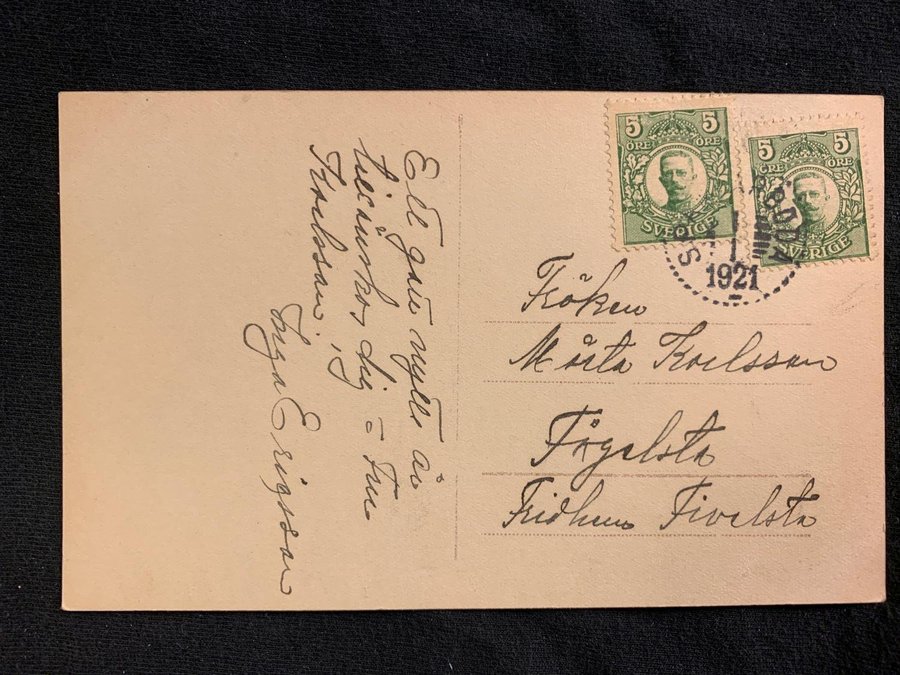 Ett gott nytt år
tillönskas dig o Fru
Karlsson.
Inga Erigsson
5 5
ÖRE ÖRE
SVERIGE
5 5
ÖRE ÖRE
SVERIGE
1921
Fröken
Märta Karlsson
Fågelsta
Fridhem Fivelsta